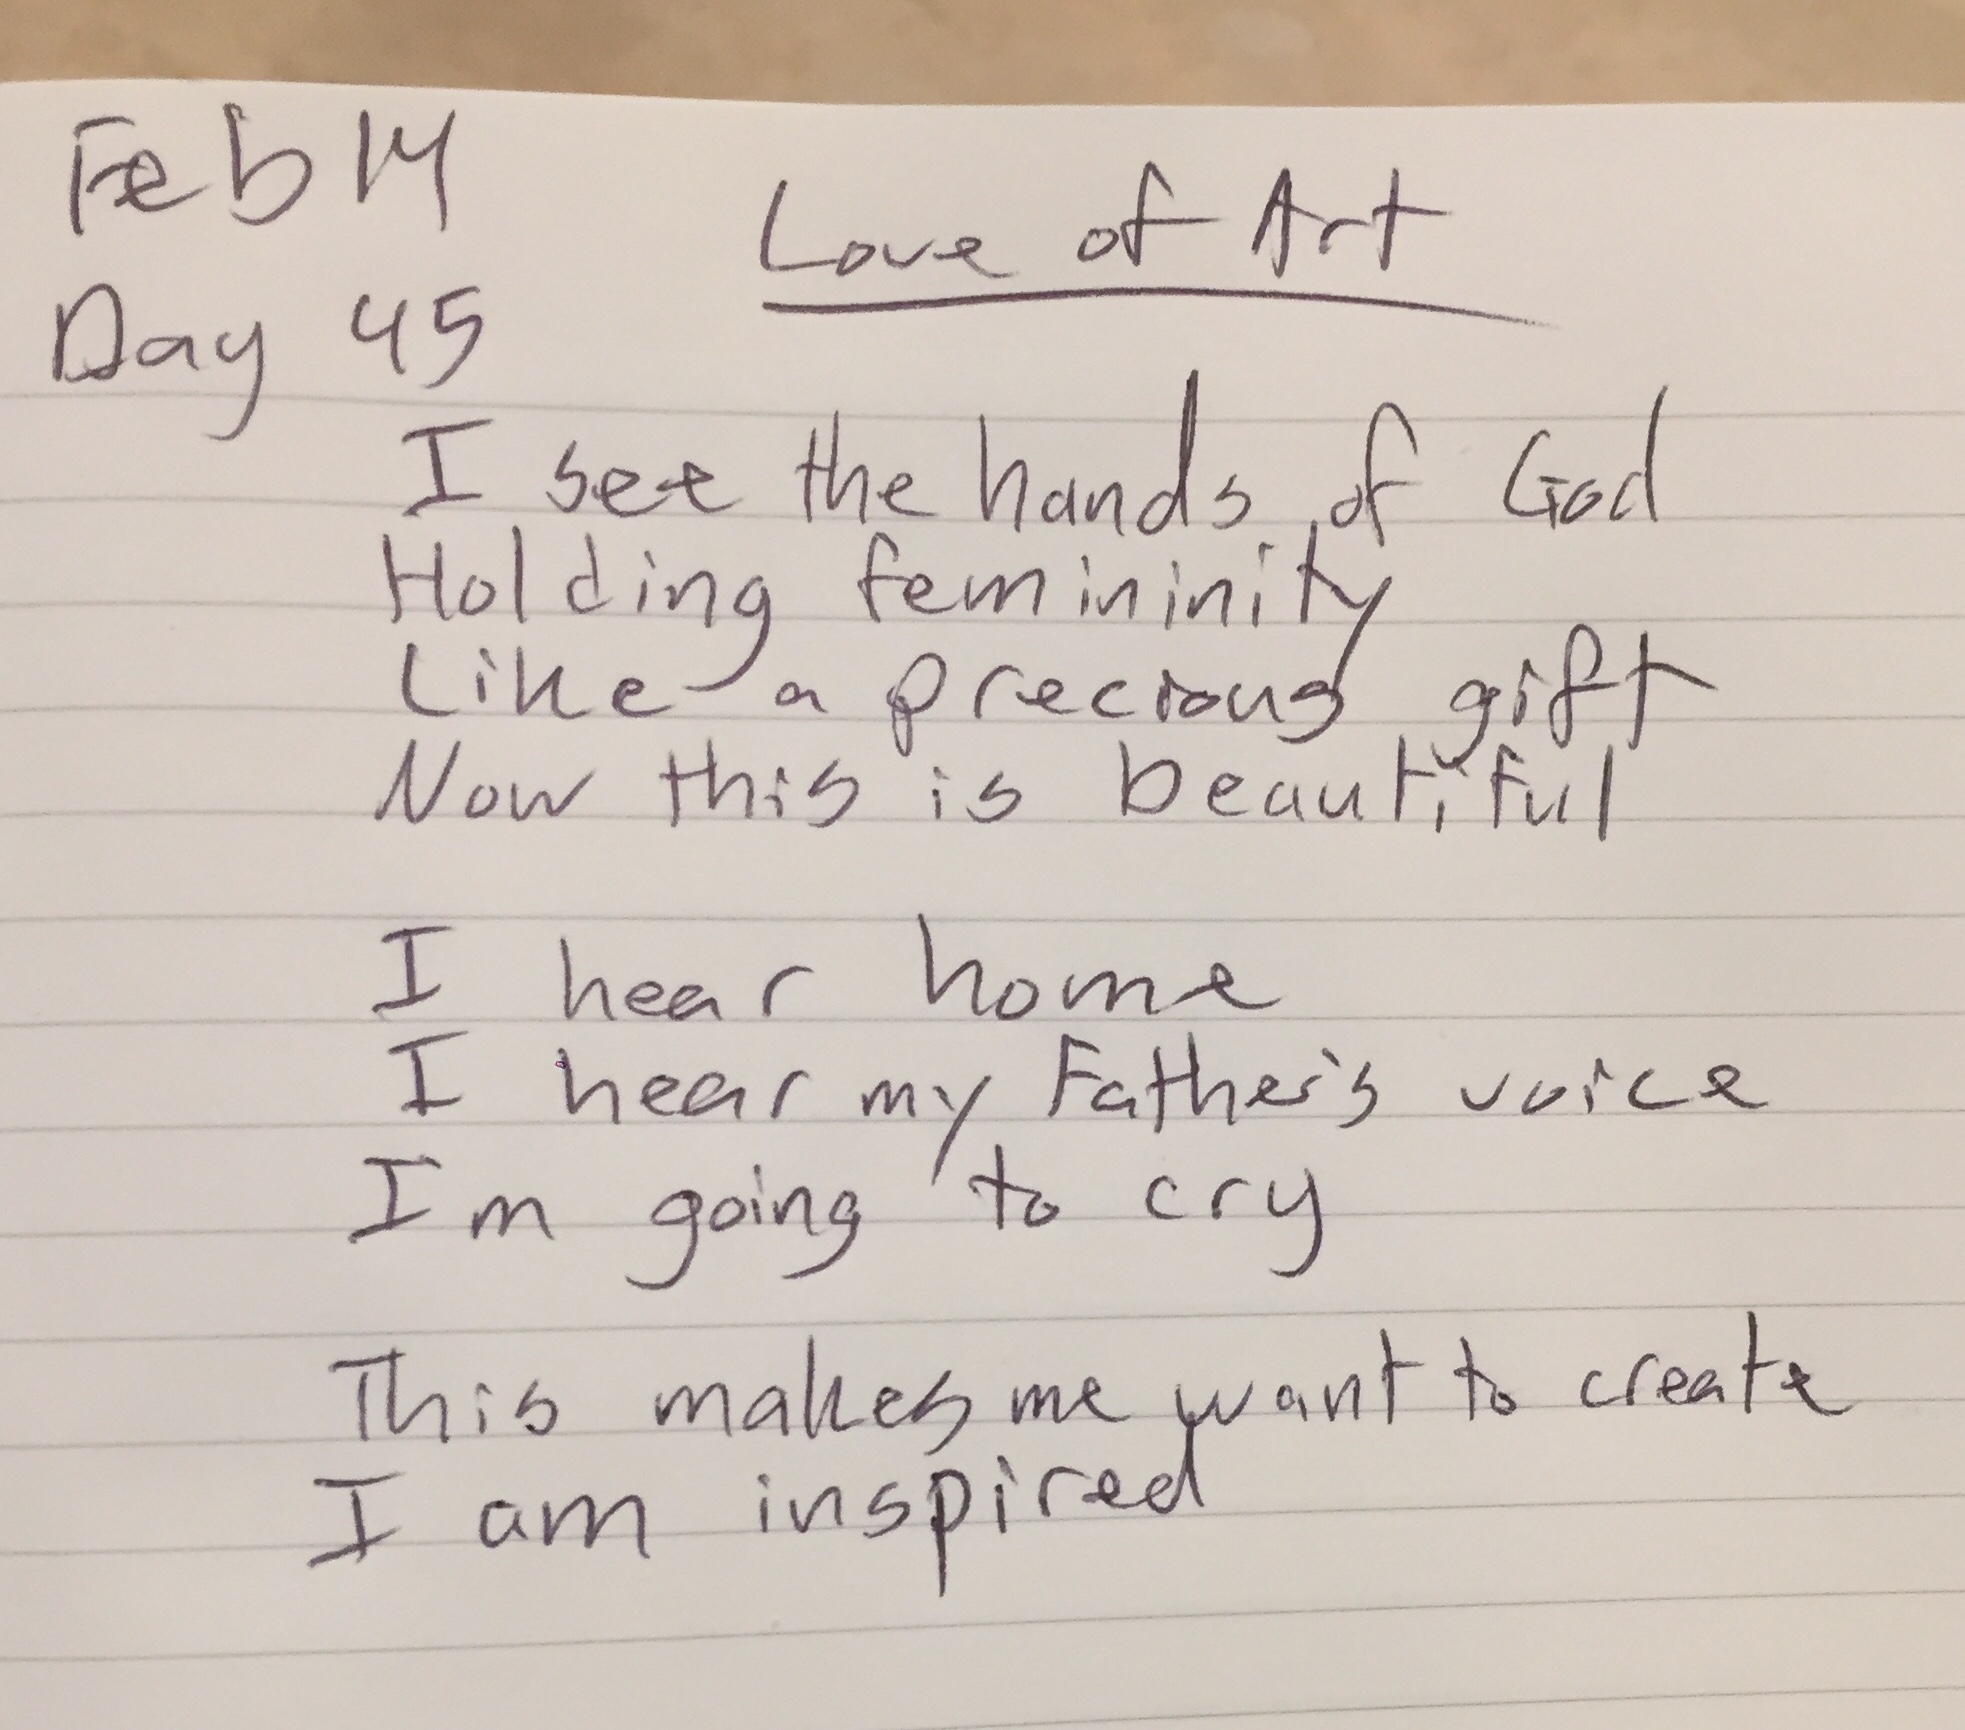 Feb 14
Love of Art
Day 45
I see the hands of God
Holding femininity
Like a precious gift
Now this is beautiful
I hear home
I hear my Father's voice
Im going to cry
This makes me want to create
I am inspired